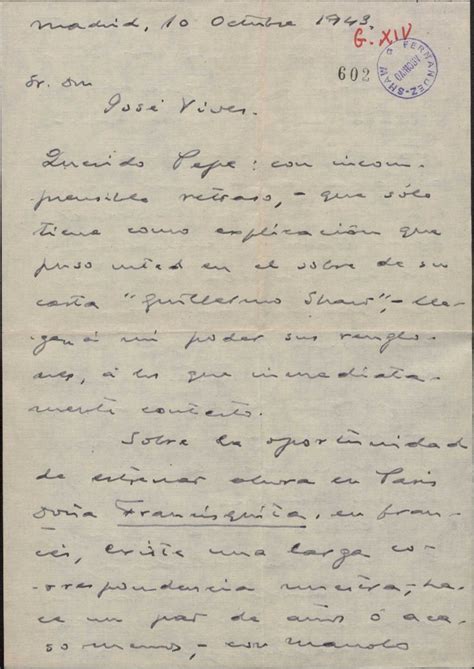 Madrid, 10 Octubre 1943
G. XIV
602
FERNANDEZ-SHAW
ARCHIVO
Sr. Don
José Vives.
Querido Pepe: con incom-
prensible retraso, - que sólo
tiene como explicación que
puso usted en el sobre de su
carta "Guillermo Shaw", - lle-
gan á mi poder sus renglo-
nes, á los que inmediata-
mente contesto.
Sobre la oportunidad
de estrenar ahora en Paris
Doña Francisquita, en fran-
cés, existe una larga co-
rrespondencia nuestra, ha-
ce un par de años ó aca-
so menos, - con Manolo